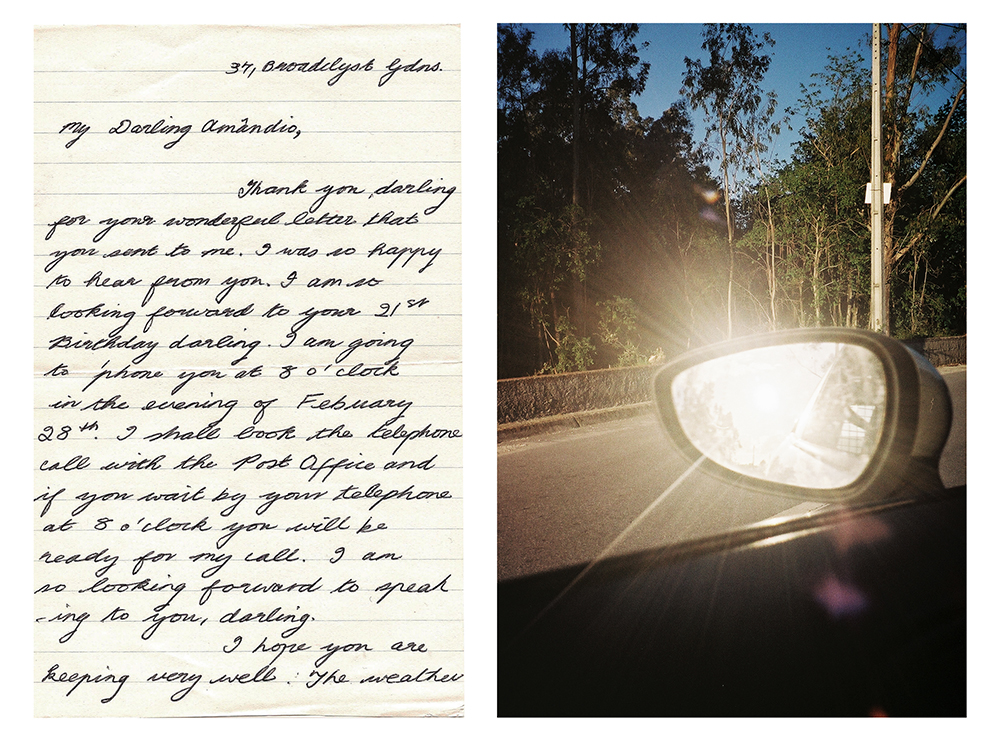 37, Broadclyst Gdns.
My Darling Amândio,
Thank you, darling
for your wonderful letter that
you sent to me. I was so happy
to hear from you. I am so
looking forward to your 21st
Birthday darling. I am going
to 'phone you at 8 o'clock
in the evening of Febuary
28th. I shall book the telephone
call with the Post Office and
if you wait by your telephone
at 8 o'clock you will be
ready for my call. I am
so looking forward to speak
-ing to you, darling.
I hope you are
keeping very well. The weather